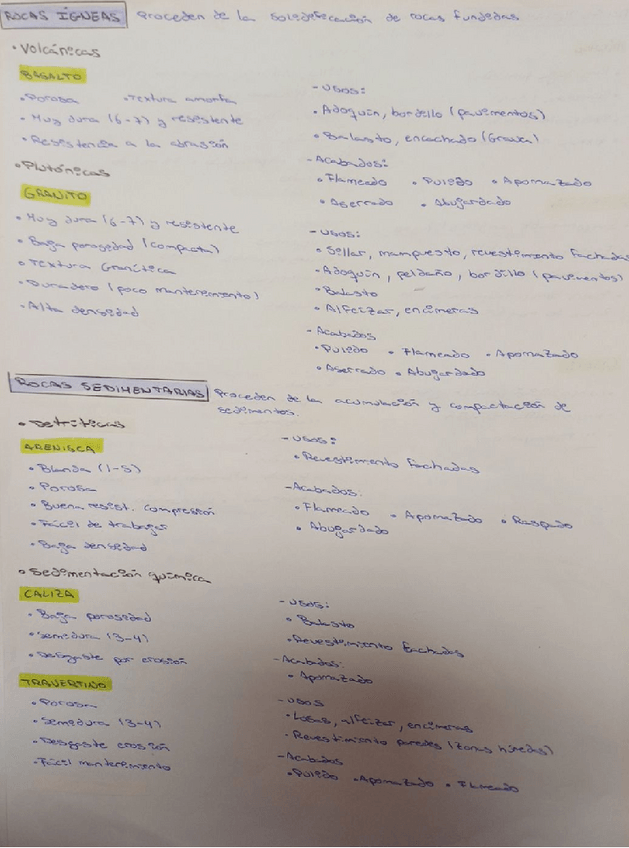 ROCAS ÍGNEAS Proceden de la solidificación de rocas fundidas.
• Volcánicas
BASALTO
• Porosa • Textura amorfa
• Muy dura (6-7) y resistente
• Resistencia a la abrasión
- Usos:
• Adoquín, bordillo (pavimentos)
• Balasto, encachado (Grava)
- Acabados:
• Flameado • Pulido • Apomazado
• Aserrado • Abujardado
• Plutónicas
GRANITO
• Muy dura (6-7) y resistente
• Baja porosidad (compacta)
• Textura Granítica
• Duradero (poco mantenimiento)
• Alta densidad
- Usos:
• Sillar, mampuesto, revestimiento fachadas
- Adoquín, peldaño, bordillo (pavimentos)
• Balasto
• Alfeizar, encimeras
- Acabados
• Pulido • Flameado • Apomazado
• Aserrado • Abujardado
ROCAS SEDIMENTARIAS Proceden de la acumulación y compactación de
sedimentos.
• Detríticas
ARENISCA
• Blanda (1-5)
• Porosa
• Buena resist. compresión
• Fácil de trabajar
• Baja densidad
- Usos:
• Revestimiento fachadas
- Acabados:
• Flameado • Apomazado • Raspado
• Abujardado
• Sedimentación química
CALIZA
• Baja porosidad
• Semidura (3-4)
• Desgaste por erosión
- Usos:
• Balasto
• Revestimiento fachadas
- Acabados:
• Apomazado
TRAVERTINO
• Porosa
• Semidura (3-4)
• Desgaste erosión
• Fácil mantenimiento
- Usos
• Losas, alfeizar, encimeras
• Revestimiento paredes (zonas húmedas)
- Acabados
• Pulido • Apomazado • Flameado